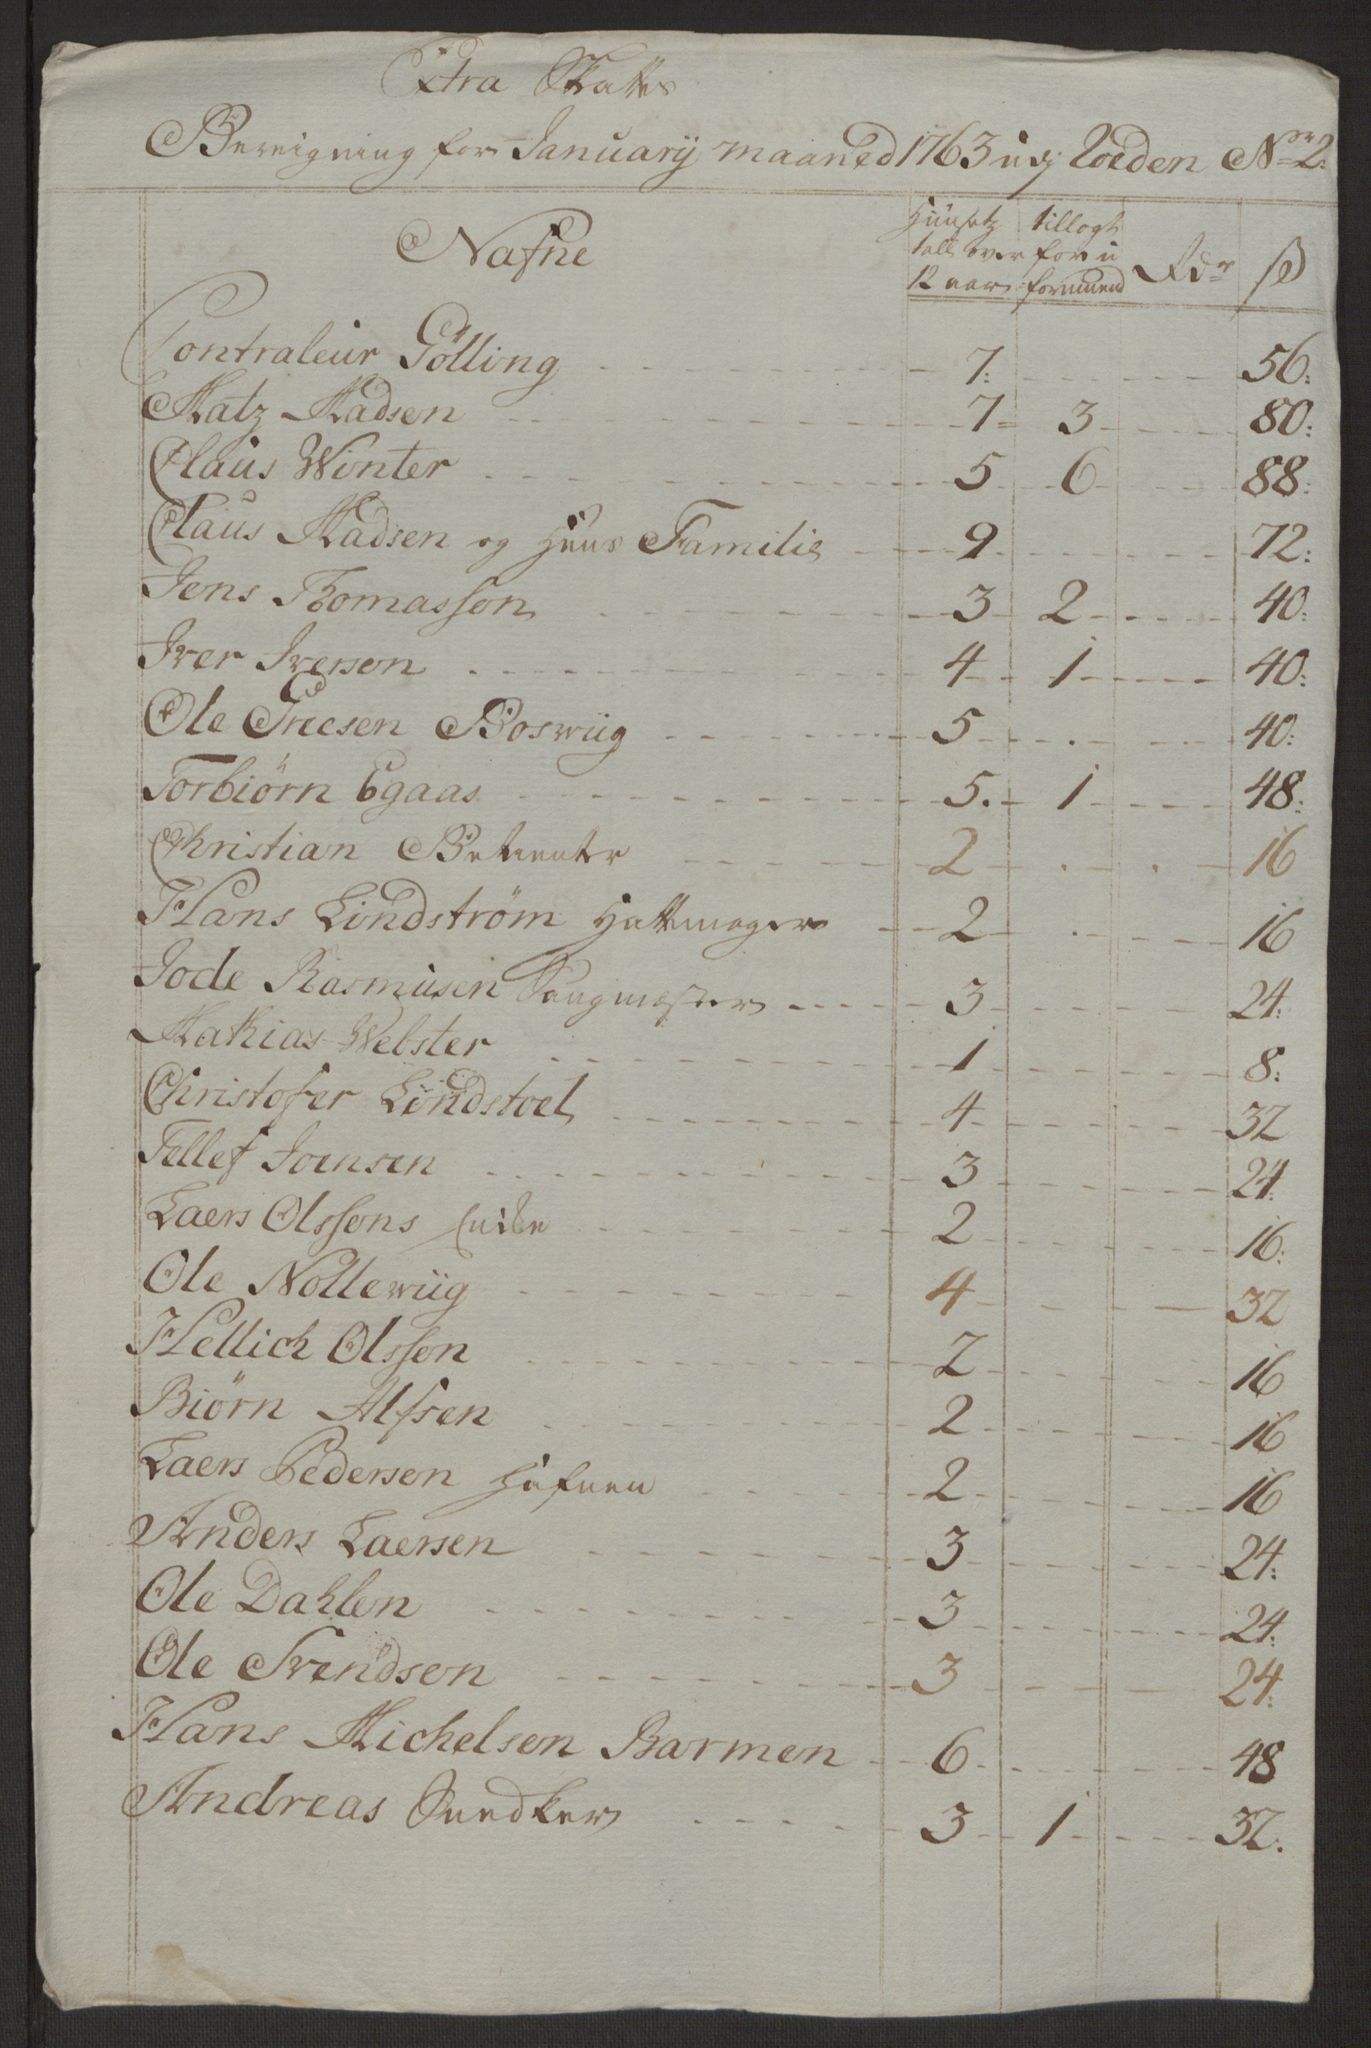 Extra Skatts
Beregning for January maaned 1763 udj Roeden No 2:
Nafne
Huusets tall over 12 aar
tillagt for u formuend
Rdr
ß
Contraleur Gölling 7: 56:
Matz Madsen 7 3 80:
Claus Winter 5 6 88:
Claus Madsen og Huus Familie 9 72:
Jens Thomasson 3 2 40:
Iver Iverson 4 1 40:
Ole Boswiig 5 40:
Torbiörn Egaas 5. 1 48:
Christian 2 16
Hans Lindström Hattmager 2 16
Jode Rasmusen Saugmester 3 24:
Mathias Webster 1 8:
Christofer Lindstoel 4 32
Tellef Joensen 3 24:
Laers Olssons Encke 2 16:
Ole Nollewiig 4 32
Hellich Olsson 2 16
Biörn Alfsen 2 16
Laers Pedersen Hafnen 2 16
Anders Laersen 3 24:
Ole Dahlen 3 24:
Ole Svendson 3 24:
Hans Michelsen Barmen 6 48
Andreas Snedker 3 1 32.